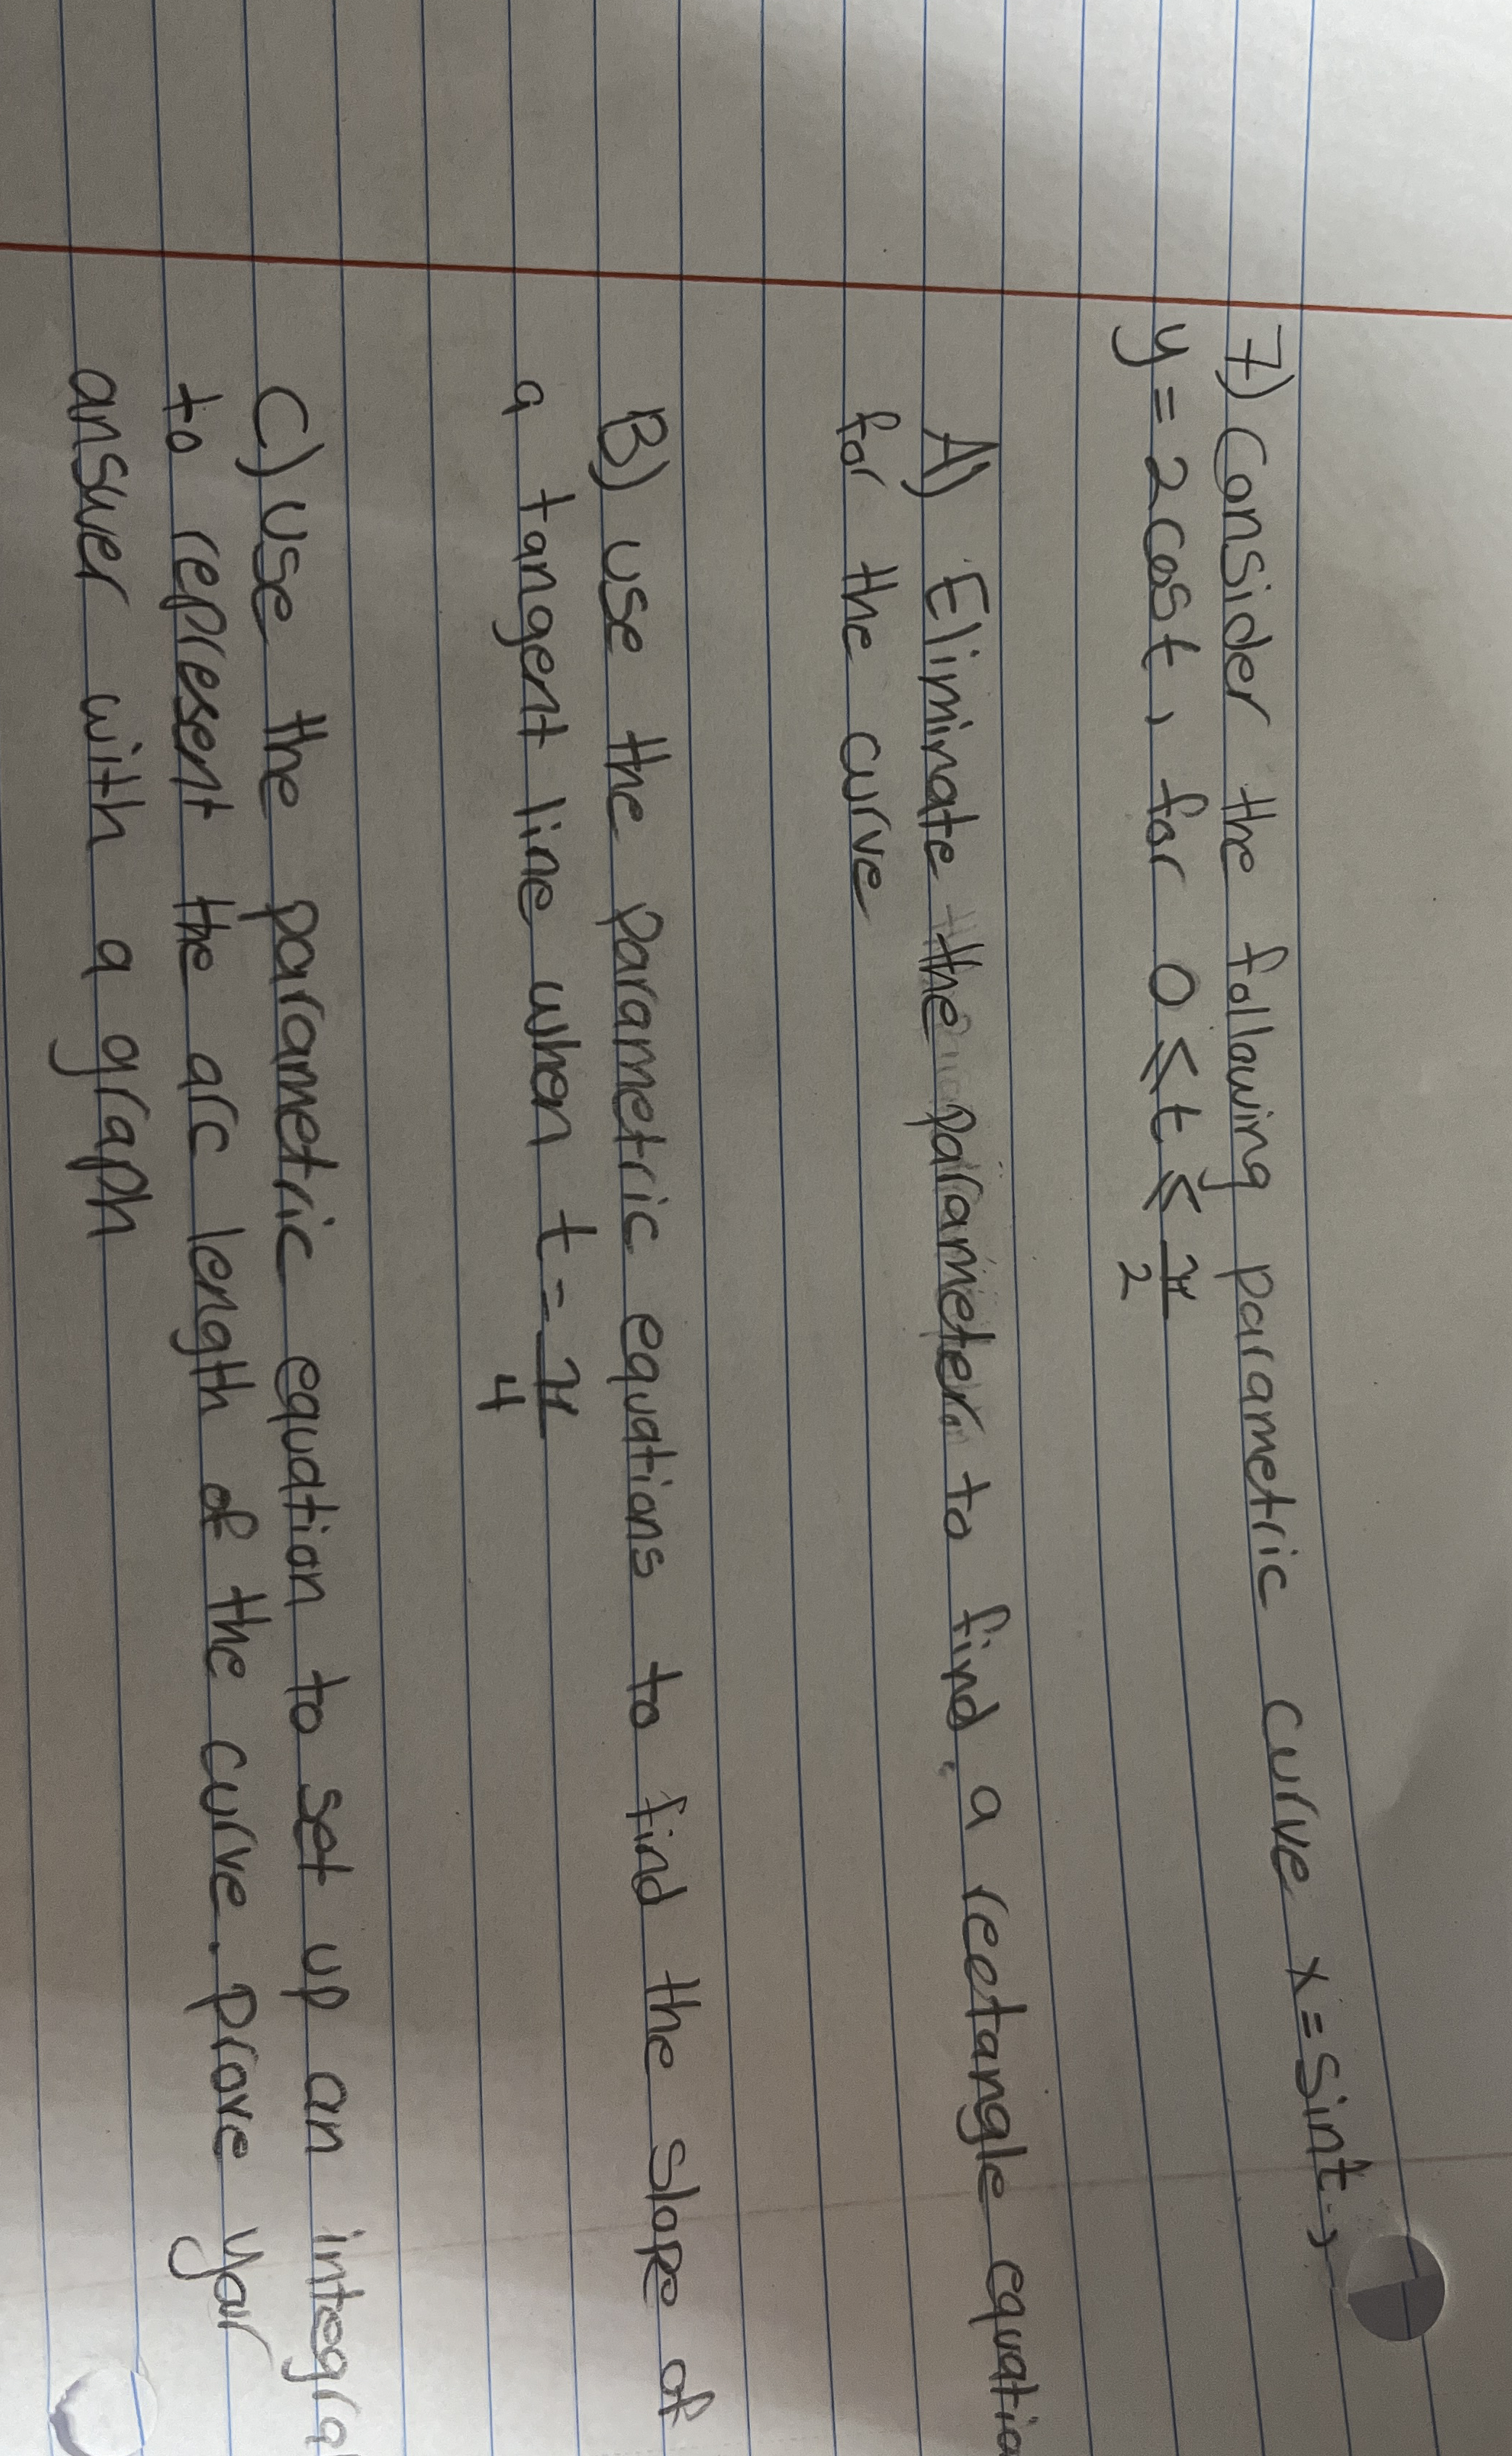 7) Consider the following parametric curve x = sint,
y = 2cost, for 0 ≤ t ≤ π/2
A) Eliminate the parameter to find a rectangle equatio
for the curve
B) use the parametric equations to find the slope of
a tangent line when t = π/4
C) use the parametric equation to set up an integra
to represent the arc length of the curve. Prove your
answer with a graph